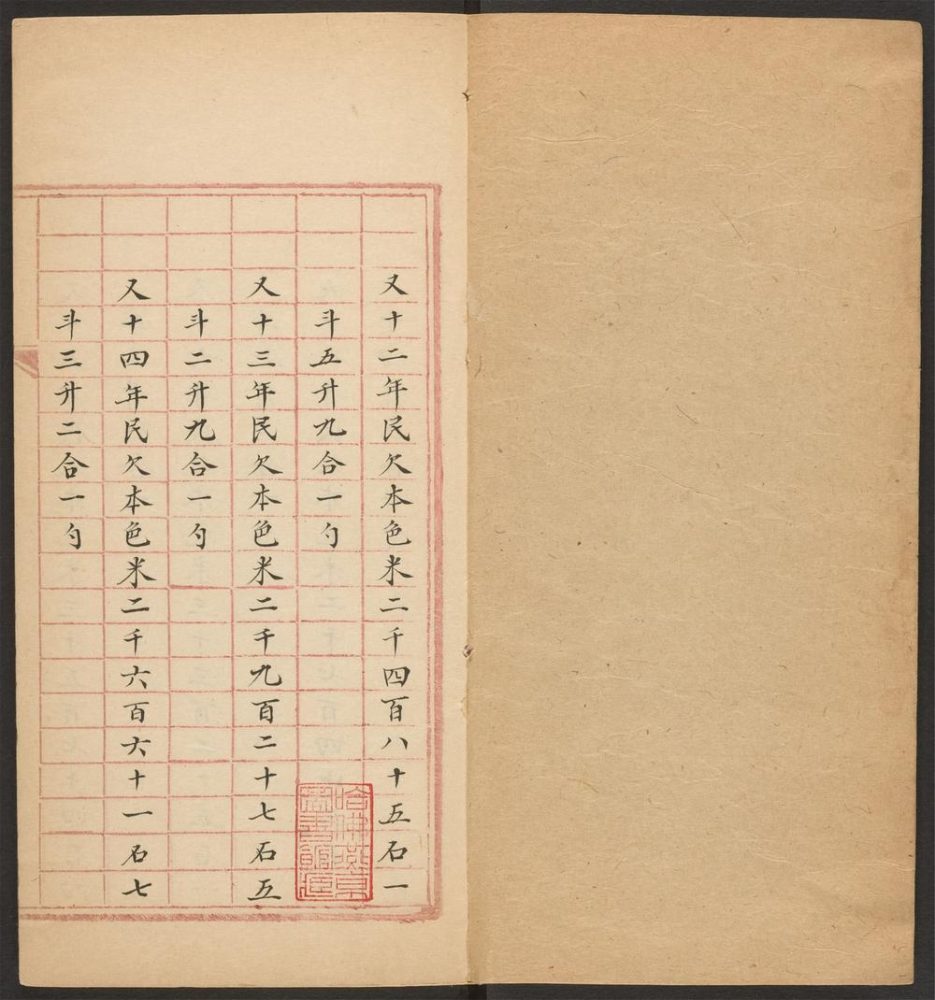 又十二年民欠本色米二千四百八十五石一
斗五升九合一勺
又十三年民欠本色米二千九百二十七石五
斗二升九合一勺
又十四年民欠本色米二千六百六十一石七
斗三升二合一勺
哈佛燕京
圖書館藏